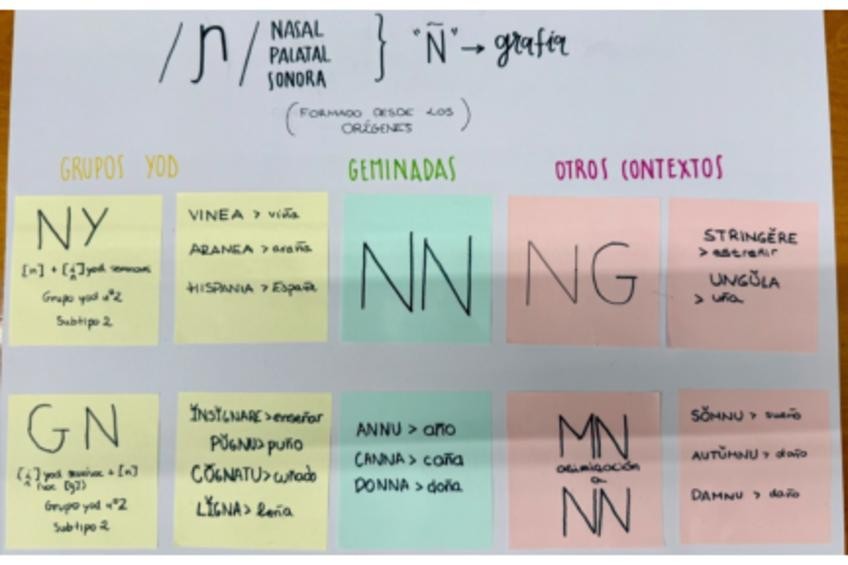 /ɲ/ NASAL
PALATAL
SONORA
} "Ñ" → grafía
(FORMADO DESDE LOS
ORÍGENES)
GRUPOS YOD
GEMINADAS
OTROS CONTEXTOS
NY
[n] + [i̯] yod
Grupo yod nº2
Subtipo 2
VINEA > viña
ARANEA > araña
HISPANIA > España
NN
NG
STRINGĔRE
> estreñir
UNGŬLA
> uña
GN
yod + [n]
Grupo yod nº2
Subtipo 2
ĬNSĬGNARE > enseñar
PŬGNU > puño
CŎGNATU > cuñado
LĬGNA > leña
ANNU > año
CANNA > caña
DONNA > doña
MN
asimilación
a
NN
SŎMNU > sueño
AUTŬMNU > otoño
DAMNU > daño